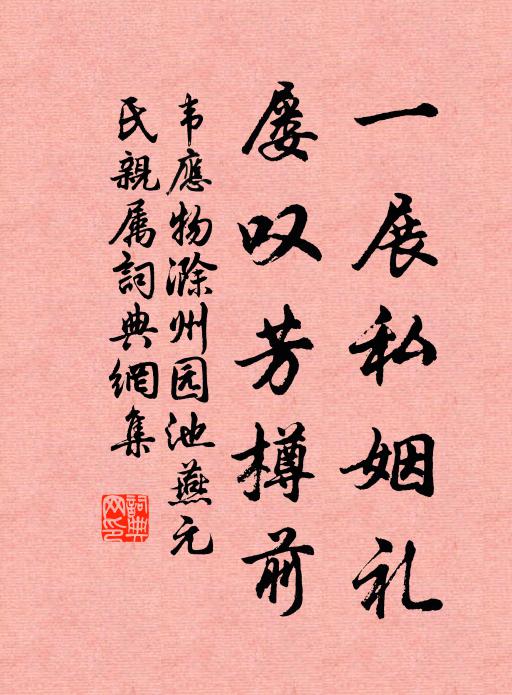 一展私姻礼
屡叹芳樽前
韦應物滁州园池燕元
氏親属詞典網集
詞典网印